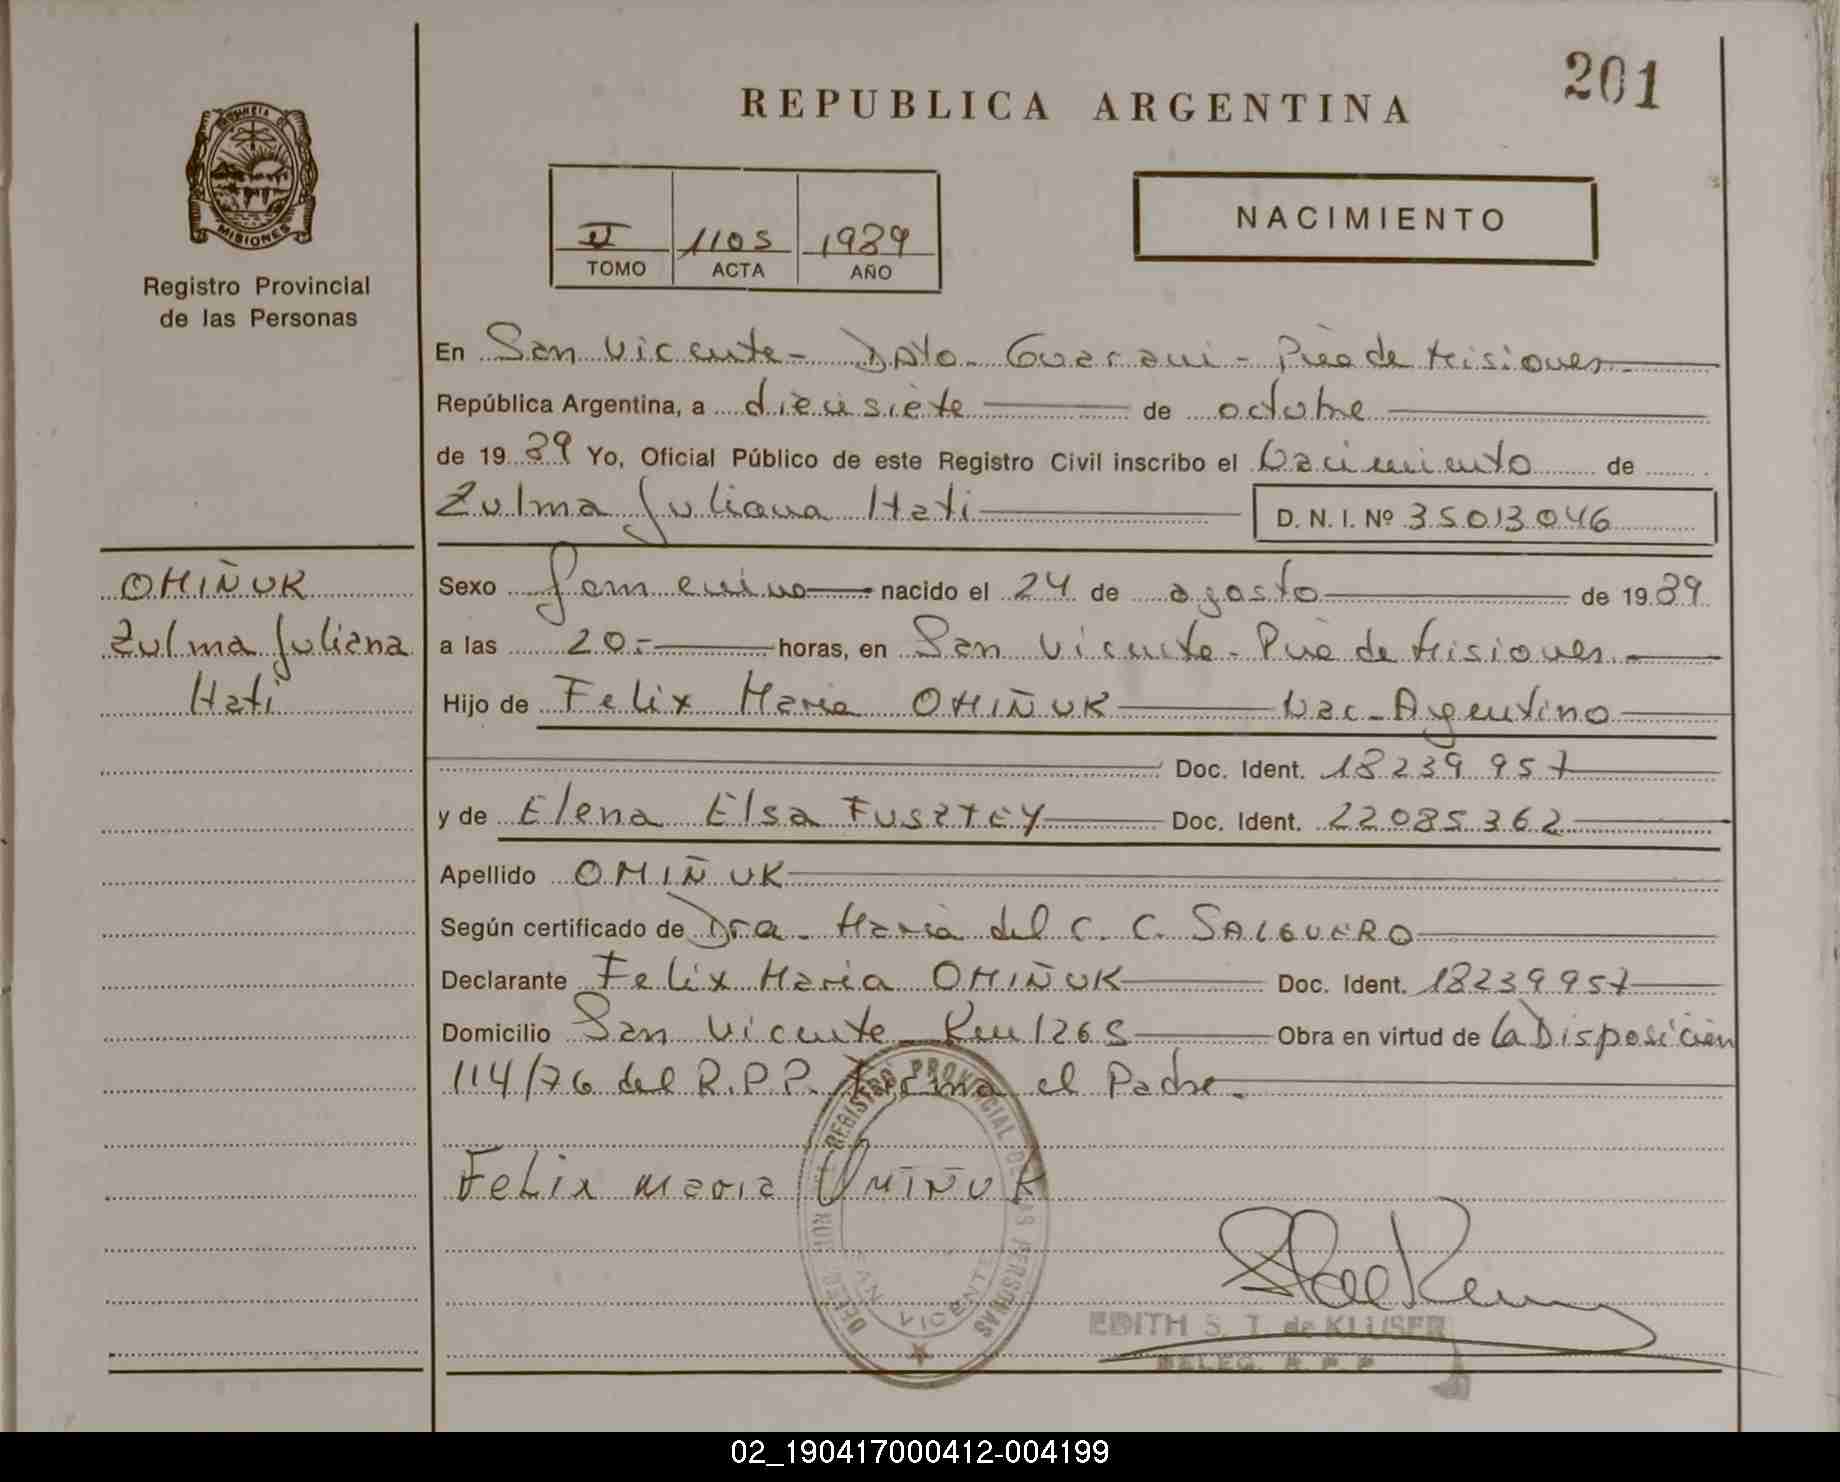 201
REPUBLICA ARGENTINA
PROVINCIA DE
MISIONES
Registro Provincial
de las Personas
II 1105 1989
TOMO ACTA AÑO
NACIMIENTO
En San Vicente - Dpto. Guarani - Pcia de Misiones
República Argentina, a diecisiete de octubre
de 1989 Yo, Oficial Público de este Registro Civil inscribo el Nacimiento de
Zulma Juliana Itati D. N. I. Nº 35013046
OMIÑUK
Zulma Juliana
Itati
Sexo femenino nacido el 24 de agosto de 1989
a las 20.- horas, en San Vicente - Pcia de Misiones.
Hijo de Felix Maria OMIÑUK Nac. Argentino
Doc. Ident. 18239957
y de Elena Elsa FUSZTEY Doc. Ident. 22085362
Apellido OMIÑUK
Según certificado de Dra. Maria del C. C. SALGUERO
Declarante Felix Maria OMIÑUK Doc. Ident. 18239957
Domicilio San Vicente Km 1265 Obra en virtud de la Disposición
114/76 del R.P.P. Firma el Padre.
Felix maria OMIÑUK
REGISTRO PROVINCIAL DE LAS PERSONAS
SAN VICENTE
EDITH S. T. de KLUSER
DELEG. R. P. P.
02_190417000412-004199